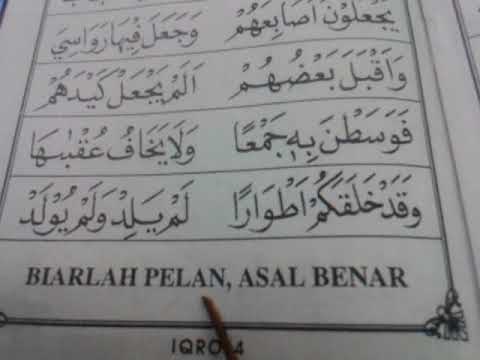 يَجْعَلُوْنَ اَصَابِعَهُمْ وَجَعَلَ فِيْهَا رَوَاسِيَ
وَاَقْبَلَ بَعْضُهُمْ اَلَمْ يَجْعَلْ كَيْدَهُمْ
فَوَسَطْنَ بِهٖ جَمْعًا وَلَا يَخَافُ عُقْبٰىهَا
وَقَدْ خَلَقَكُمْ اَطْوَارًا لَمْ يَلِدْ وَلَمْ يُوْلَدْ
BIARLAH PELAN, ASAL BENAR
IQRO 4